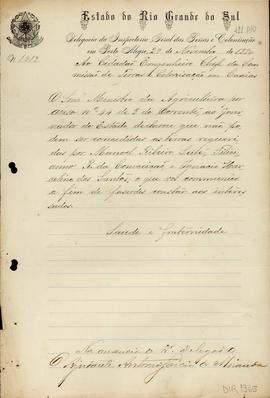 Estado do Rio Grande do Sul
Delegacia da Inspectoria Geral das Terras e Colonisação
em Porto Alegre, 29 de Novembro de 1890
Nº 1312
Ao Cidadão Engenheiro Chefe da Com
missão de Terras e Colonisação em Caxias
O Snr Ministro da Agricultura por
aviso nº 44 de 3 do corrente, ao Gover
nador do Estado declarou que não po
dem ser concedidas as terras requeri
das por Manoel Ribeiro Leite, Felis
R. da Conceição e Ignacio
dos Santos, o que vos communico
a fim de fazerdes constar aos interes
sados.
Saude e fraternidade
Na ausencia do Dr. Delegado
O Ajudante Antonio de Miranda
DIR 1365